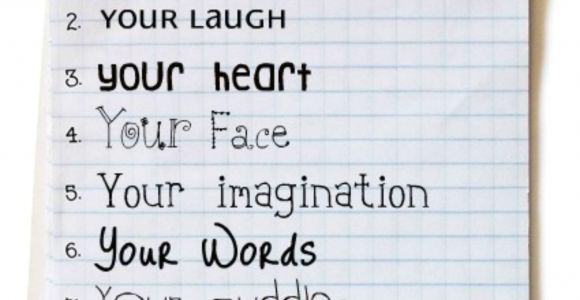 2. YOUR LAUGH
3. your heart
4. Your Face
5. Your imagination
6. Your Words
Your